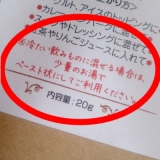 カレー、アイスのトッピング
ドレッシングに混ぜて
茶やりんごジュースに入れて
※冷たい飲みものに混ぜる場合は、
少量のお湯で
ペースト状にしてご利用ください。
内容量:20g